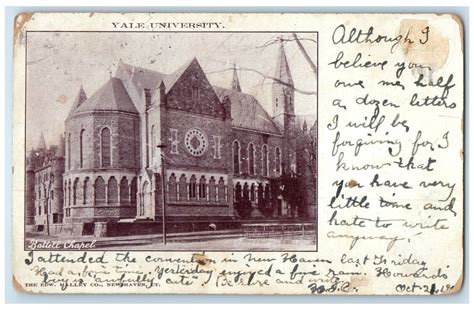 YALE UNIVERSITY.
Although I
believe you
owe me half
a dozen letters
I will be
forgiving for I
know that
you have very
little time and
hate to write
anyway.
Battell Chapel
I attended the convention in New Haven last Friday
Had a in time. Yesterday enjoyed a fine rain. Howard's
boy is awfully cute. write and
THE EDW. MALLEY CO., NEW HAVEN, CT.
Oct 21, 19